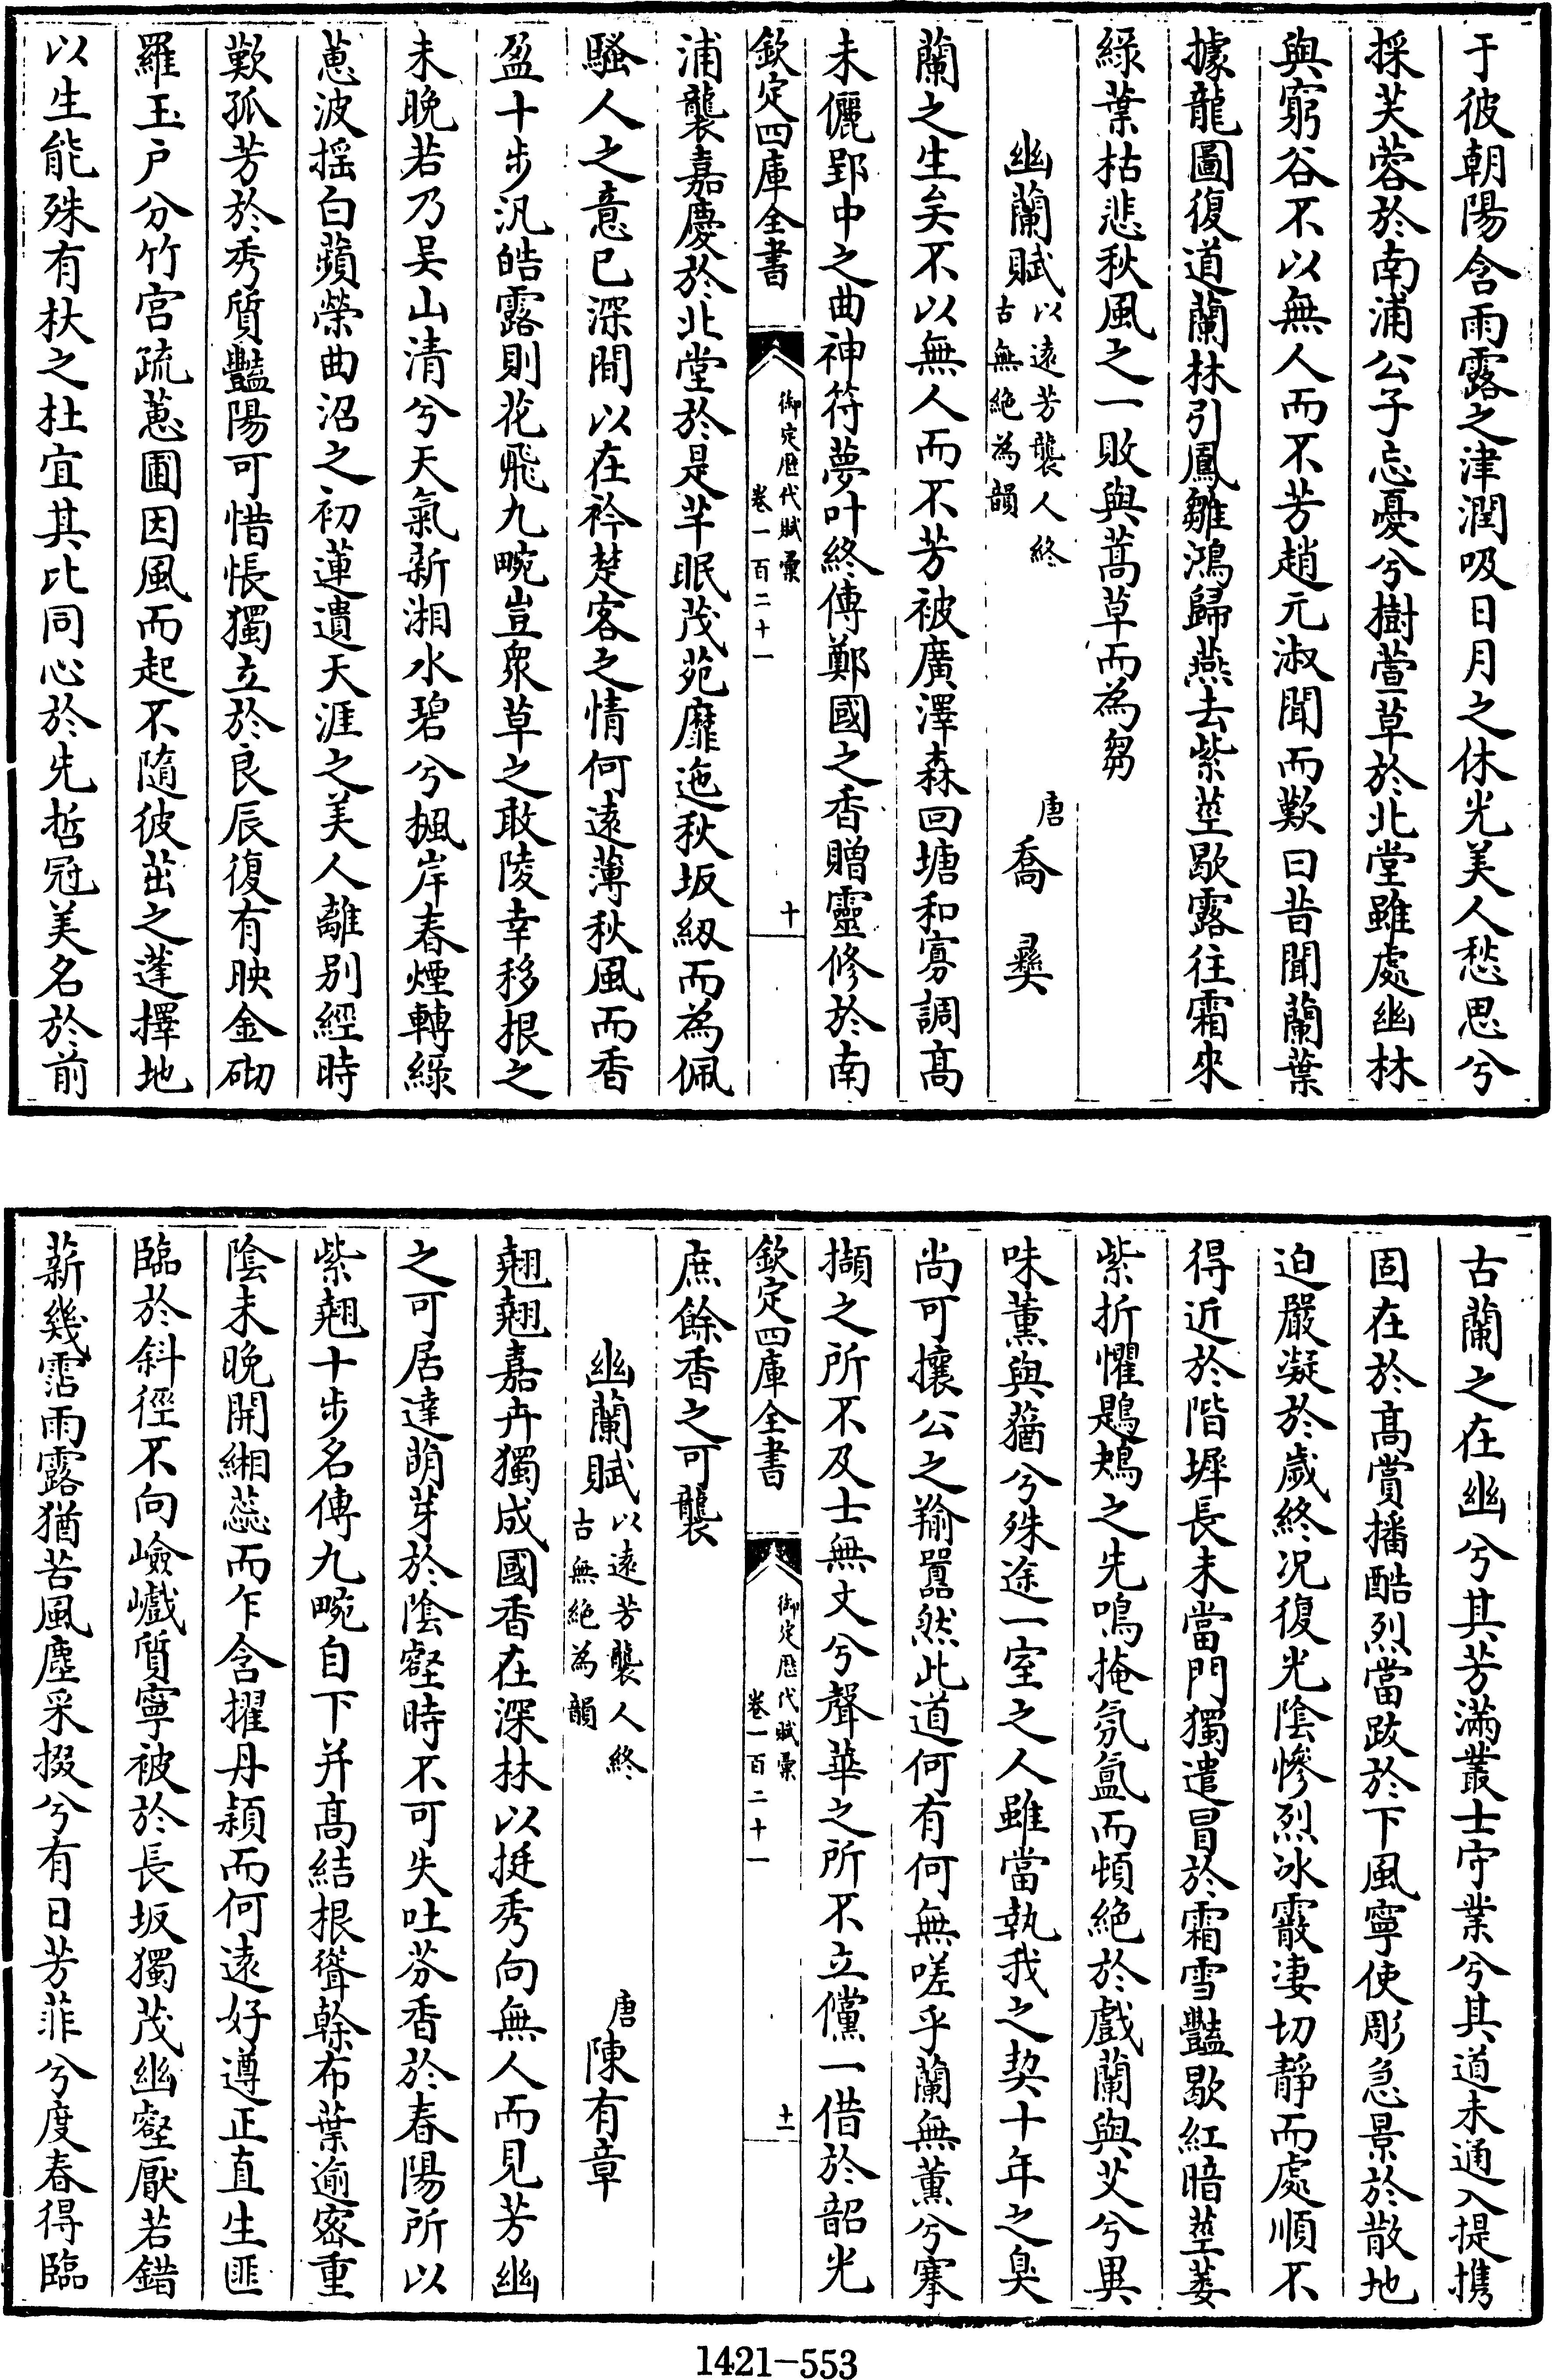 于彼朝陽含雨露之津潤吸日月之休光美人愁思兮
採芙蓉於南浦公子忘憂兮樹萱草於北堂雖處幽林
與窮谷不以無人而不芳趙元淑聞而歎曰昔聞蘭葉
據龍圖復道蘭林引鳳雛鴻歸燕去紫莖歇露往霜來
綠葉枯悲秋風之一敗與蒿草而為芻
幽蘭賦以遠芳襲人終古無絶為韻 唐喬彛
蘭之生矣不以無人而不芳被廣澤森回塘和寡調高
未儷郢中之曲神符夢叶終傳鄭國之香贈靈修於南
欽定四庫全書 御定歷代賦彙 卷一百二十一 十
浦襲嘉慶於北堂於是芊眠茂苑靡迤秋坂紉而為佩
騷人之意已深間以在衿楚客之情何遠薄秋風而香
盈十步汎皓露則花飛九畹豈衆草之敢陵幸移根之
未晚若乃吴山清兮天氣新湘水碧兮楓岸春煙轉綠
蕙波摇白蘋縈曲沼之初蓮遺天涯之美人離别經時
歎孤芳於秀質豔陽可惜悵獨立於良辰復有映金砌
羅玉戶分竹宫疏蕙圃因風而起不隨彼茁之蓬擇地
以生能殊有杕之杜宜其比同心於先哲冠美名於前
古蘭之在幽兮其芳滿叢士守業兮其道未通入提携
固在於高賞播酷烈當跋於下風寧使彫急景於散地
迫嚴凝於歲終况復光陰慘烈冰霰凄切靜而處順不
得近於階墀長未當門獨遣冒於霜雪豔歇紅暗莖萎
紫折懼鶗鴂之先鳴掩氛氲而頓絶於戲蘭與艾兮異
味薰與蕕兮殊途一室之人雖當執我之契十年之臭
尚可攘公之羭囂然此道何有何無嗟乎蘭無薰兮搴
擷之所不及士無文兮聲華之所不立儻一借於韶光
欽定四庫全書 御定歷代賦彙 卷一百二十一 十一
庶餘香之可襲
幽蘭賦以遠芳襲人終古無絶為韻 唐陳有章
翹翹嘉卉獨成國香在深林以挺秀向無人而見芳幽
之可居達萌芽於陰壑時不可失吐芬香於春陽所以
紫翹十步名傳九畹自下并高結根聳榦布葉逾密重
陰未晚開緗蕊而乍含擢丹穎而何遠好遵正直生匪
臨於斜徑不向嶮巇質寧被於長坂獨茂幽壑厭若錯
薪幾霑雨露猶苦風塵采掇兮有日芳菲兮度春得臨
1421-553